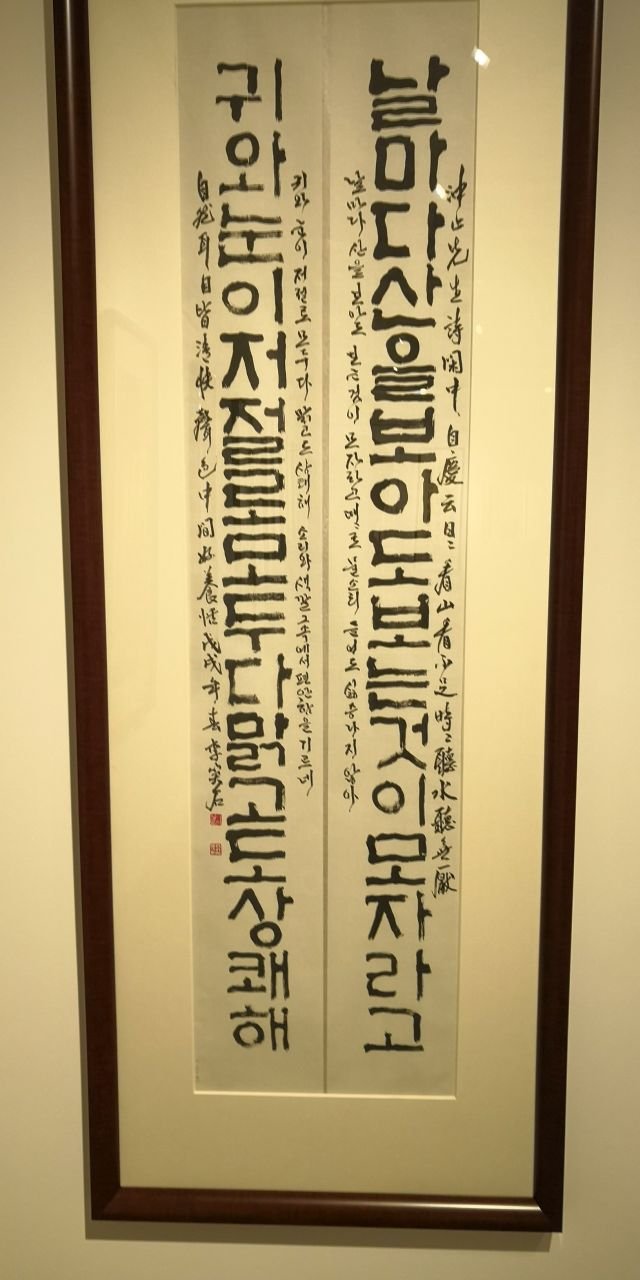 沖止先生詩閑中自慶云日〻看山看不足時〻聽水聽無厭
날마다산을보아도보는것이모자라고
날마다 산을 보아도 보는것이 모자라고 때〻로 물소리 들어도 싫증나지 않아
귀와 눈이 저절로 모두다 맑고도 상쾌해 소리와 색깔 그속에서 편안함을 기르네
귀와눈이저절로모두다맑고도상쾌해
自然耳目皆淸快聲色中間好養恬戊戌年春